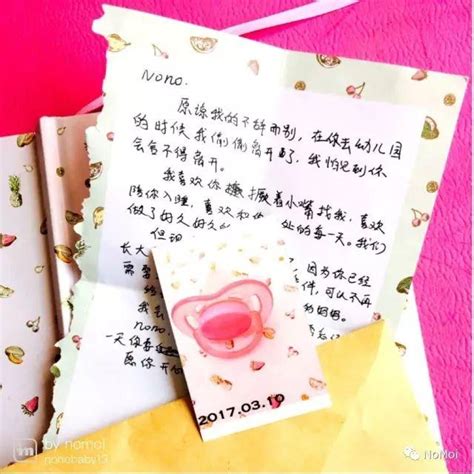 Nono.
原谅我的不辞而别,在你去幼儿园
的时候我偷偷离开了,我怕见到你
会舍不得离开。
我喜欢你撅着小嘴找我,喜欢
陪你入睡,喜欢和 处的每一天。我们
做了好久好久
但现 因为你已经
长大 件,可以不再
需要 的
我
nono.
一天你
愿你开
2017.03.10
by nomoi
nonobaby13
NoMoi